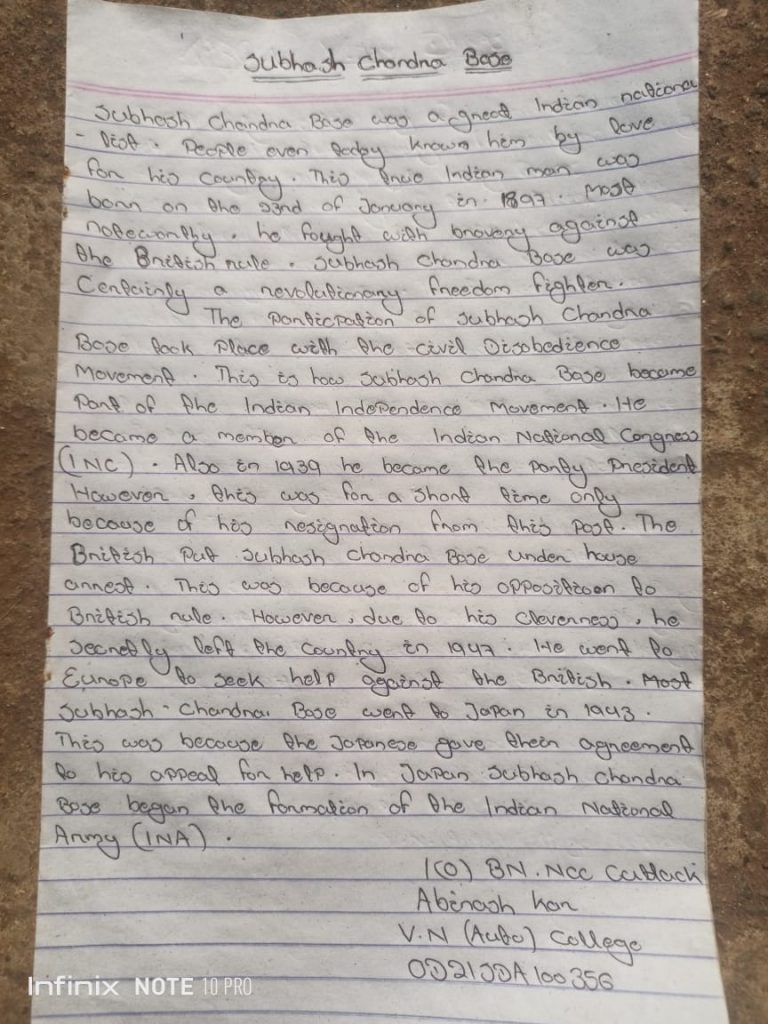 Subhash Chandra Bose
Subhash Chandra Bose was a great Indian nationa
- list. People even today known him by love
for his country. This true Indian man was
born on the 23nd of January in 1897. Most
noteworthy, he fought with bravery against
the British rule. Subhash Chandra Bose was
Certainly a revolutionary freedom fighter.
The Participation of Subhash Chandra
Bose took Place with the civil Disobedience
Movement. This is how Subhash Chandra Bose became
Part of the Indian Independence Movement. He
became a member of the Indian National Congress
(INC). Also in 1939 he became the party President
However, this was for a short time only
because of his resignation from this post. The
British Put Subhash Chandra Bose under house
arrest. This was because of his opposition to
British rule. However, due to his cleverness, he
secretly left the country in 1947. He went to
Europe to seek help against the British. Most
Subhash - Chandra. Bose went to Japan in 1943.
This was because the Japanese gave their agreement
to his appeal for help. In Japan Subhash Chandra
Bose began the formation of the Indian National
Army (INA).
1(O) BN. NCC Cuttack
Abinash Kar
V.N (Auto) College
OD21SDA100356
Infinix NOTE 10 PRO